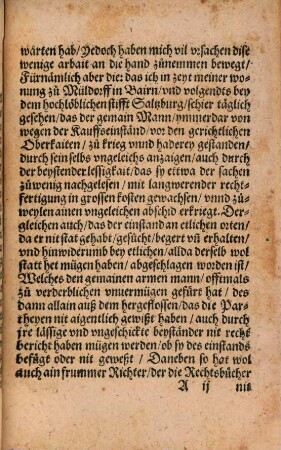 warten hab/ Yedoch haben mich vil vrsachen dise
wenige arbait an die hand zůnemmen bewegt/
Fürnämlich aber die: das ich in zeyt meiner wo-
nung zů Müldorff in Bairn/ vnd volgendts bey
dem hochlöblichen stifft Saltzburg/ schier täglich
gesehen/ das der gemain Mann/ ymmerdar von
wegen der Kauffseinständ/ vor den gerichtlichen
Oberkaiten/ zů krieg vnnd haderey gestanden/
durch sein selbs vngleichs anzaigen/ auch durch
der beystender lessigkait/ das sy ettwa der sachen
zůwenig nachgelesen/ mit langwerender recht-
fertigung in grossen kosten gewachsen/ vnnd zů-
weylen ainen vngleichen abschid erkriegt. Der-
gleichen auch/ das der einstand an etlichen orten/
da er nit stat gehabt/ gesůcht/ begert vñ erhalten/
vnd hinwiderumb bey etlichen/ allda derselb wol
statt het mügen haben/ abgeschlagen worden ist/
Welches den gemainen armen mann/ offtmals
zů verderblichen vnuermügen gefürt hat/ des
dann allain auß dem hergeflossen/ das die Par-
theyen nit aigentlich gewißt haben/ auch durch
jre lässige vnd vngeschickte beyständer nit recht
bericht haben mügen werden/ ob sy des einstands
befůgt oder nit geweßt/ Daneben so hat wol
auch ain frummer Richter/ der die Rechtsbücher
A ij nit